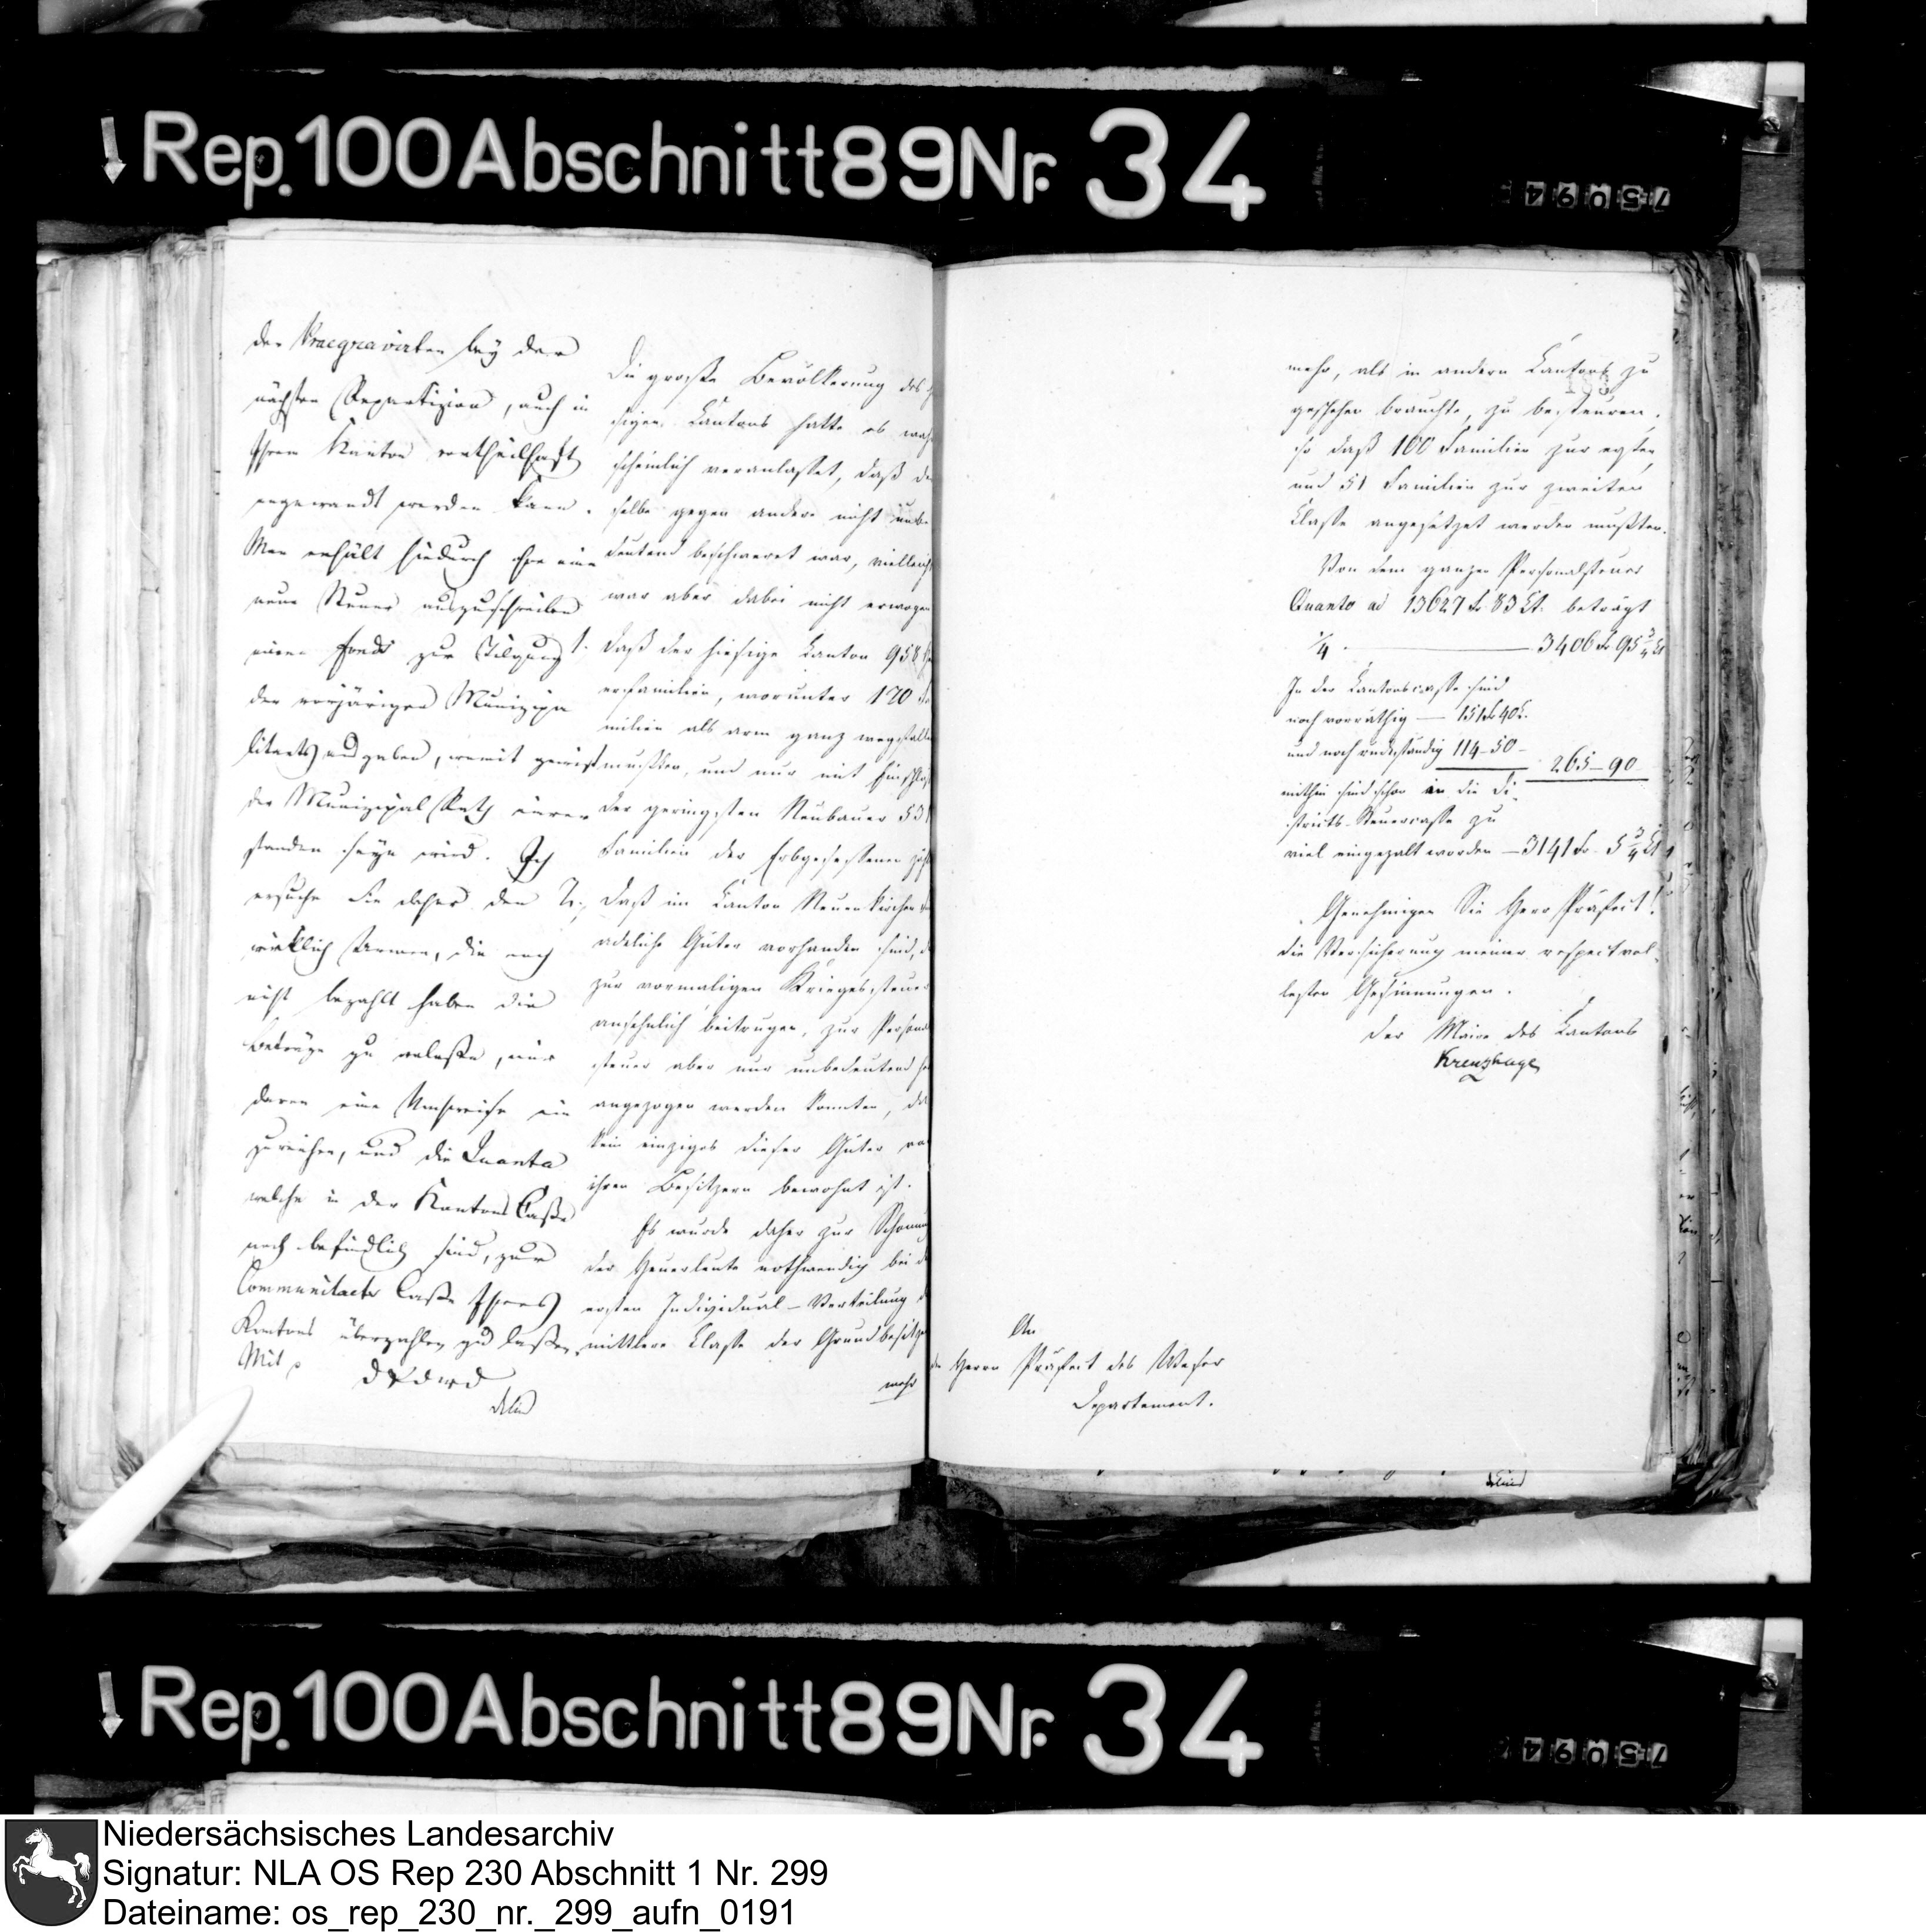 Rep. 100 Abschnitt 89 Nr. 34
75094
der Praegravirten bey der
nächsten Repartizion, auch in
Ihrem Kanton vortheilhaft
angewandt werden kann.
Man erhält hiedurch ohne eine
neue Steuer auszuschreiben
einen Fonds zur Tilgung
der vorjärigen Munizipa
litaets ausgaben, womit gewiß
der Munizipal Rath einver
standen seyn wird. Ich
ersuche Sie daher den
wirklich Armen, die noch
nicht bezahlt haben die
Beträge zu erlaßen, mir
davon eine Nachweise ein
zureichen, und die Quanta
welche in der Kantons Caße
noch befindlich sind, zur
Communitaets Caße Ihres
Kantons überzahlen zu laßen.
Mit
Die große Bevölkerung des
sigen Cantons hatte es wah
scheinlich veranlaßet, daß de
selbe gegen andere nicht unbe
deutend beschweret war, vielleich
war aber dabei nicht erwogen
1. daß der hiesige Canton 958
erfamilien, worunter 170 Fa
milien als arm ganz wegfallen
mußten, und nur mit Einschluß
der geringsten Neubauer 531
Familien der Erbgesessenen zäh
daß im Canton Neuenkirchen
adeliche Güter vorhanden sind, d
zur vormaligen Kriegessteuer
ansehnlich beitrugen, zur Personal
steuer aber nur unbedeutend he
angezogen werden konnten, da
kein einziges dieser Güter vo
ihren Besitzern bewohnt ist.
Es wurde daher zur Schonung
der Heuerleute nothwendig bei d
ersten Individual-Verteilung d
mittlere Classe der Grundbesitzer
mehr
mehr, als in andern Cantons zu
geschehen brauchte, zu besteuren,
so daß 100 Familien zur ersten
und 51 Familien zur zweiten
Classe angesetzet werden mußten.
Von dem ganzen Personalsteuer
Quanto ad 13627 Fr. 83 Ct. beträgt
1/4 — 3406 Fr 95 3/4 Ct
In der Cantonscasse sind
noch vorräthig — 151 Fr 40 C.
und noch rückständig 114-50-
265-90
mithin sind schon in die Di-
stricts-Steuercasse zu
viel eingezalt worden — 3141 Fr. 5 3/4 Ct
Genehmigen Sie Herr Präfect!
die Versicherung meiner respectvol-
lesten Gesinnungen.
Der Maire des Cantons
Kreuzhage
An
den Herrn Präfect des Weser
Departement.
Rep. 100 Abschnitt 89 Nr. 34
75094
Niedersächsisches Landesarchiv
Signatur: NLA OS Rep 230 Abschnitt 1 Nr. 299
Dateiname: os_rep_230_nr._299_aufn_0191